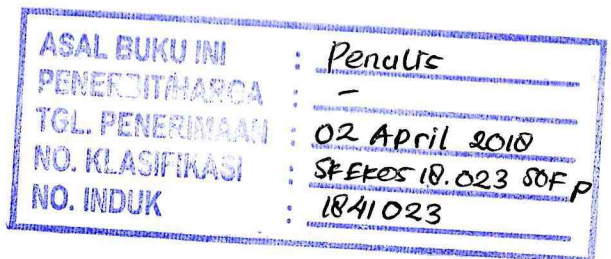 ASAL BUKU INI : Penulis
PENERBIT/HARGA : -
TGL. PENERIMAAN : 02 April 2018
NO. KLASIFIKASI : SKEKOS 18.023 SOF P
NO. INDUK : 1841023